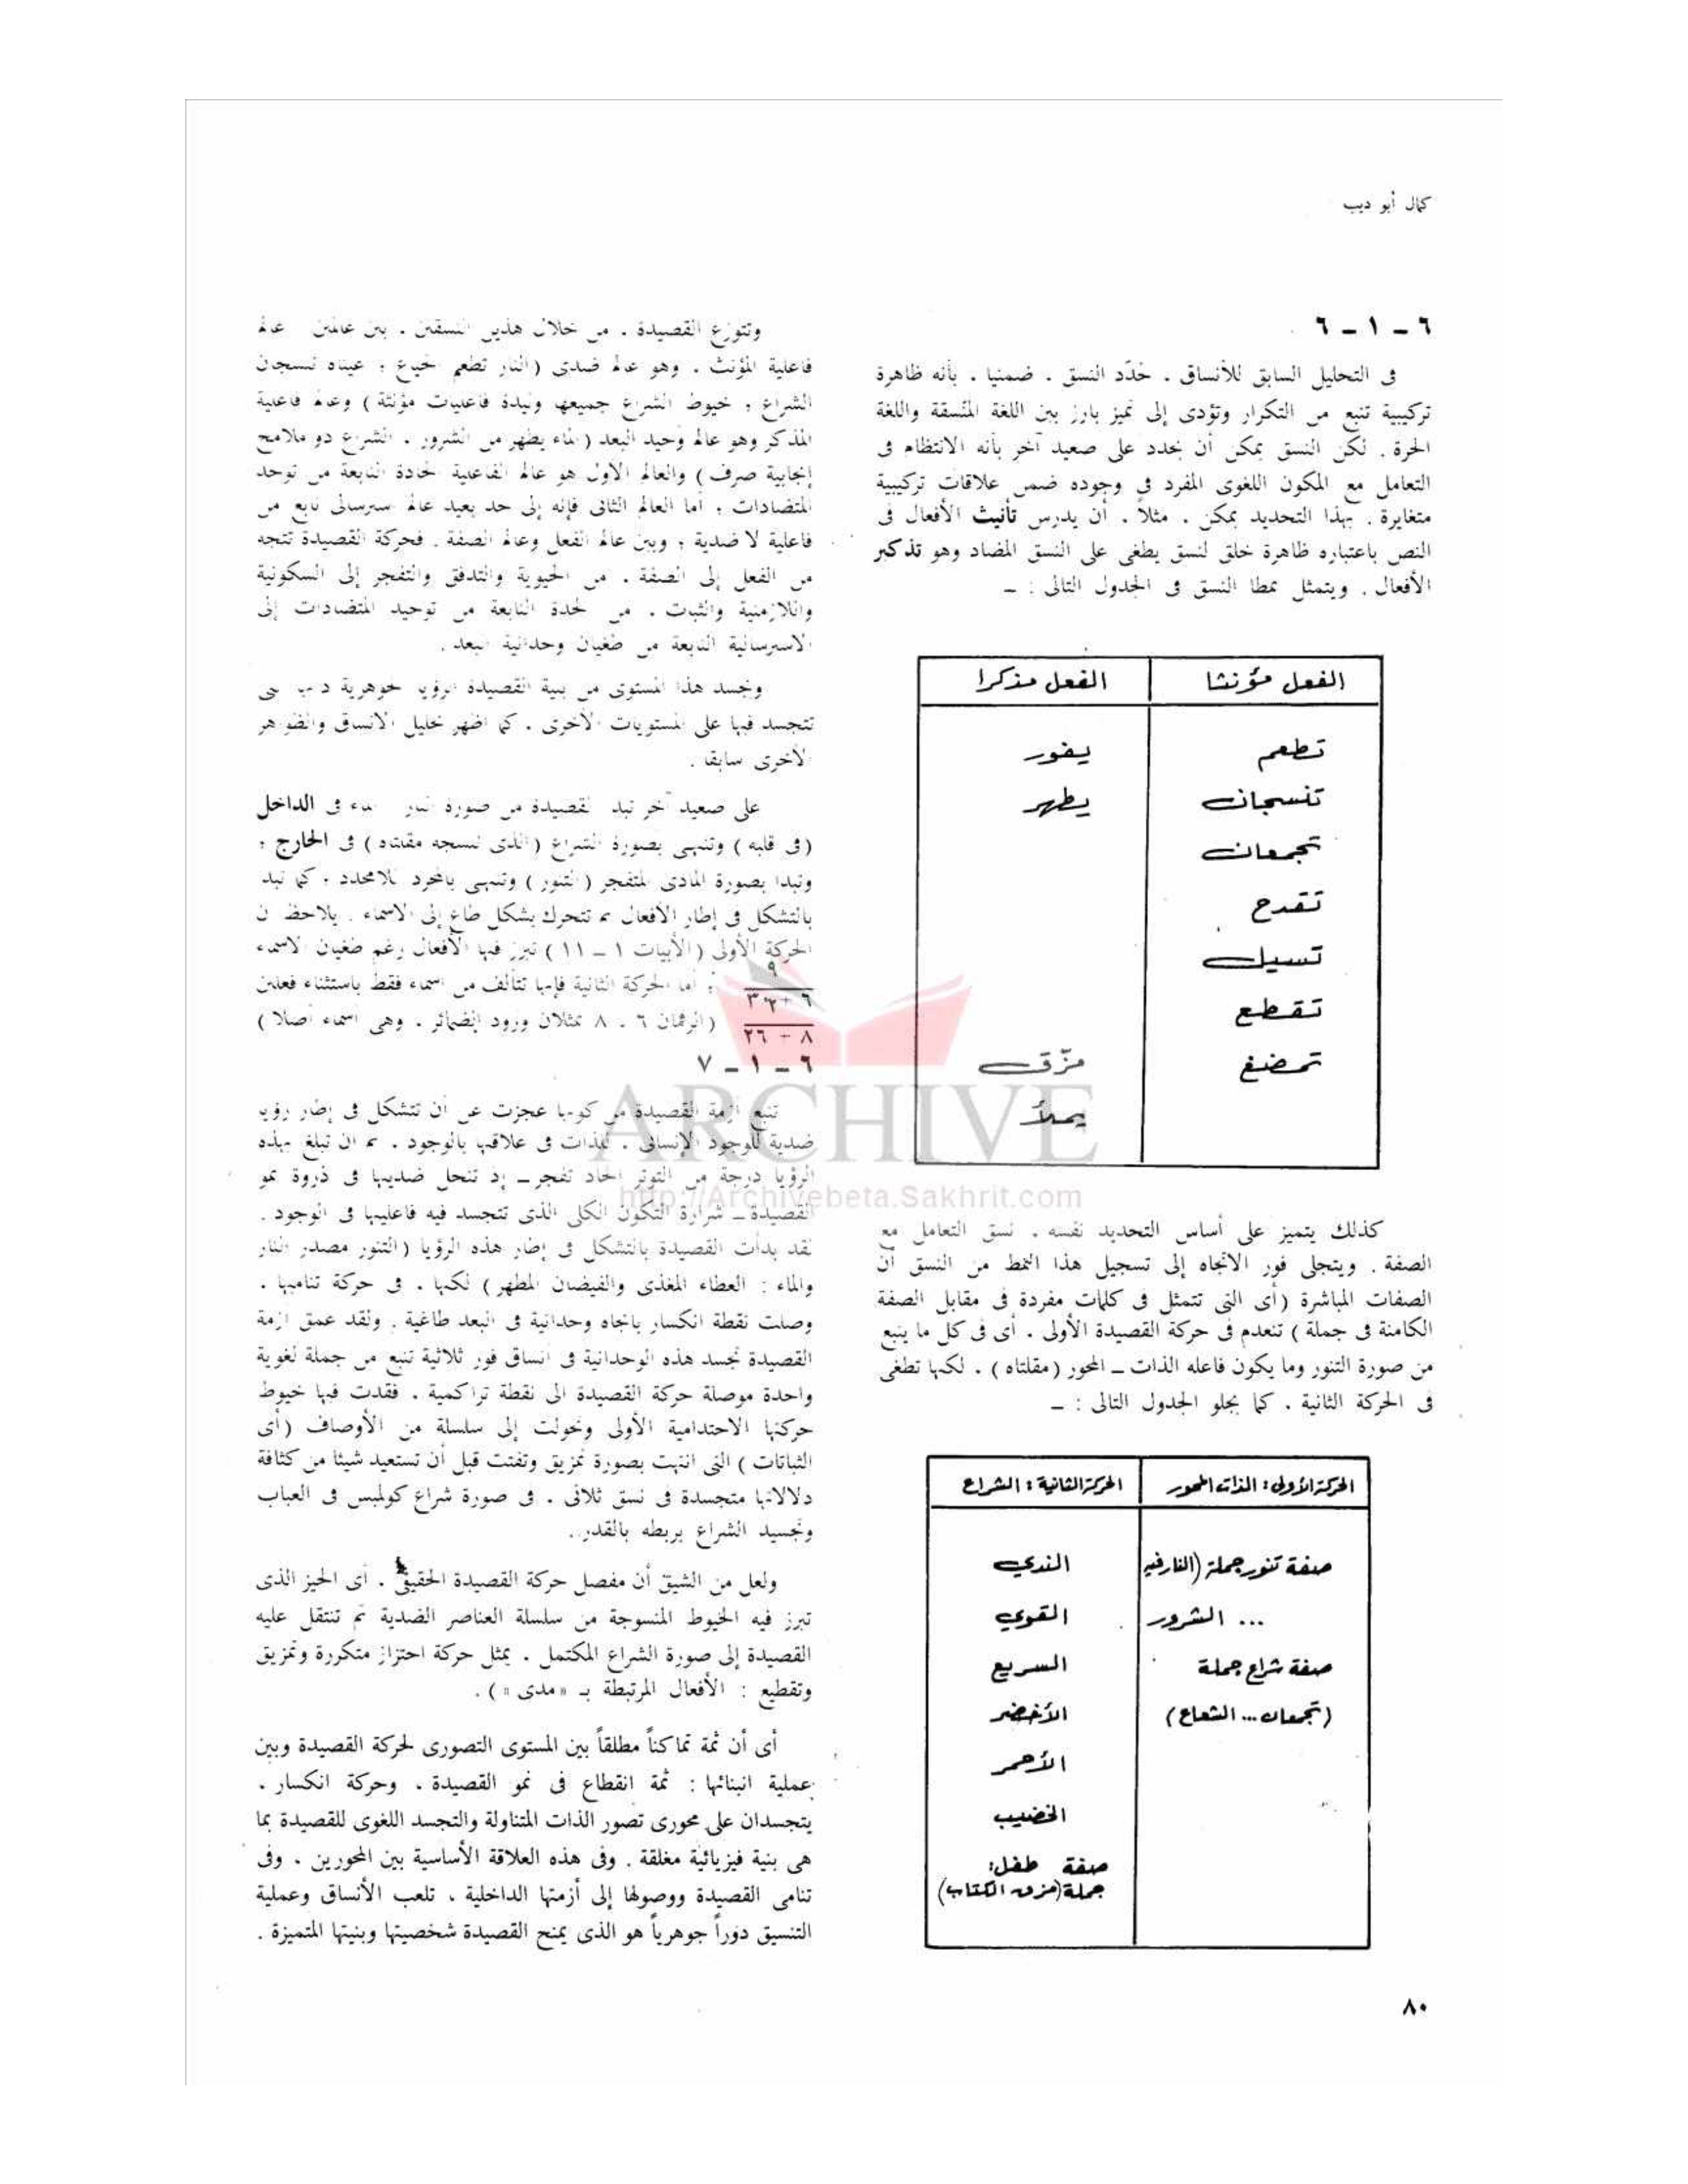 كمال أبو ديب
٦ ــ ١ ــ ٦
فى التحليل السابق للأنساق . حُدّد النسق . ضمنيا . بأنه ظاهرة
تركيبية تنبع من التكرار وتؤدى إلى تميز بارز بين اللغة المنسقة واللغة
الحرة . لكن النسق يمكن أن يحدد على صعيد آخر بأنه الانتظام فى
التعامل مع المكون اللغوى المفرد فى وجوده ضمن علاقات تركيبية
متغايرة . بهذا التحديد يمكن . مثلاً . أن يدرس تأنيث الأفعال فى
النص باعتباره ظاهرة خلق لنسق يطغى على النسق المضاد وهو تذكير
الأفعال . ويتمثل نمطا النسق فى الجدول التالى : ــ
الفعل مؤنثا الفعل مذكرا
تطعم يفور
تنسجان يطهر
تجمعان
تقدح
تسيل
تقطع
تمضغ مزّق
يملأ
كذلك يتميز على أساس التحديد نفسه . نسق التعامل مع
الصفة . ويتجلى فور الاتجاه إلى تسجيل هذا النمط من النسق أن
الصفات المباشرة (أى التى تتمثل فى كلمات مفردة فى مقابل الصفة
الكامنة فى جملة ) تنعدم فى حركة القصيدة الأولى . أى فى كل ما ينبع
من صورة التنور وما يكون فاعله الذات ــ المحور (مقلتاه ) . لكنها تطغى
فى الحركة الثانية . كما يجلو الجدول التالى : ــ
الحركة الأولى : الذات المحور الحركة الثانية : الشراع
صفة تنور جملة (النار فيه الندي
... الشرور القوي
صفة شراع جملة السريع
(تجمعان ... الشعاع) الأخضر
الأحمر
الخضيب
صفة طفل:
جملة (مزق الكتاب)
وتتوزع القصيدة . من خلال هذين النسقين . بين عالمين عالم
فاعلية المؤنث . وهو عالم ضدى (النار تطعم الجياع ؛ عيناه تنسجان
الشراع ؛ خيوط الشراع جميعها وليدة فاعليات مؤنثة ) وعالم فاعلية
المذكر وهو عالم وحيد البعد (الماء يطهر من الشرور . الشراع ذو ملامح
إيجابية صرف ) والعالم الأول هو عالم الفاعلية الحادة النابعة من توحد
المتضادات ؛ أما العالم الثانى فإنه إلى حد بعيد عالم استرسالى نابع من
فاعلية لا ضدية ؛ وبين عالم الفعل وعالم الصفة . فحركة القصيدة تتجه
من الفعل إلى الصفة . من الحيوية والتدفق والتفجر إلى السكونية
واللازمنية والثبات . من الحدة النابعة من توحيد المتضادات إلى
الاسترسالية النابعة من طغيان وحدانية البعد .
ويجسد هذا المستوى من بنية القصيدة الرؤيا الجوهرية التى
تتجسد فيها على المستويات الأخرى . كما أظهر تحليل الأنساق والظواهر
الأخرى سابقا .
على صعيد آخر تبدأ القصيدة من صورة النار فى الداخل
(فى قلبه ) وتنتهى بصورة الشراع (الذى تنسجه مقلتاه ) فى الخارج ؛
وتبدأ بصورة المادى المتفجر (التنور ) وتنتهى بالمجرد اللامحدد . كما تبدأ
بالتشكل فى إطار الأفعال ثم تتحرك بشكل طاغ إلى الأسماء . يلاحظ أن
الحركة الأولى (الأبيات ١ ــ ١١ ) تبرز فيها الأفعال رغم طغيان الأسماء
٩
٦ + ٣٢ ؛ أما الحركة الثانية فإنها تتألف من أسماء فقط باستثناء فعلين
٨ + ٢٦ (الرقمان ٦ . ٨ يمثلان ورود الضمائر . وهى أسماء أصلا )
٦ ــ ١ ــ ٧
تنبع أزمة القصيدة من كونها عجزت عن أن تتشكل فى إطار رؤيا
ضدية للوجود الإنسانى . للذات فى علاقتها بالوجود . ثم أن تبلغ بهذه
الرؤيا درجة من التوتر الحاد تفجر ــ إذ تنحل ضديتها فى ذروة نمو
القصيدة ــ شرارة التكون الكلى الذى تتجسد فيه فاعليتها فى الوجود .
لقد بدأت القصيدة بالتشكل فى إطار هذه الرؤيا (التنور مصدر النار
والماء : العطاء المغذى والفيضان المطهر ) لكنها . فى حركة تناميها .
وصلت نقطة انكسار باتجاه وحدانية فى البعد طاغية . ولقد عمق أزمة
القصيدة تجسد هذه الوحدانية فى أنساق فور ثلاثية تنبع من جملة لغوية
واحدة موصلة حركة القصيدة الى نقطة تراكمية . فقدت فيها خيوط
حركتها الاحتدامية الأولى وتحولت إلى سلسلة من الأوصاف (أى
الثباتات ) التى انتهت بصورة تمزيق وتفتت قبل أن تستعيد شيئا من كثافة
دلالاتها متجسدة فى نسق ثلاثى . فى صورة شراع كولمبس فى العباب
وتجسيد الشراع بربطه بالقدر .
ولعل من الشيق أن مفصل حركة القصيدة الحقيقى . أى الحيز الذى
تبرز فيه الخيوط المنسوجة من سلسلة العناصر الضدية ثم تنتقل عليه
القصيدة إلى صورة الشراع المكتمل . يمثل حركة احتزاز متكررة وتمزيق
وتقطيع : الأفعال المرتبطة بـ «مدى » ) .
أى أن ثمة تماكناً مطلقاً بين المستوى التصورى لحركة القصيدة وبين
عملية انبنائها : ثمة انقطاع فى نمو القصيدة . وحركة انكسار .
يتجسدان على محورى تصور الذات المتناولة والتجسد اللغوى للقصيدة بما
هى بنية فيزيائية مغلقة . وفى هذه العلاقة الأساسية بين المحورين . وفى
تنامى القصيدة ووصولها إلى أزمتها الداخلية . تلعب الأنساق وعملية
التنسيق دوراً جوهرياً هو الذى يمنح القصيدة شخصيتها وبنيتها المتميزة .
٨٠
ARCHIVE
http://Archivebeta.Sakhrit.com